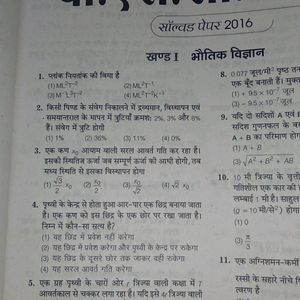 सॉल्वड पेपर 2016
खण्ड I भौतिक विज्ञान
1. प्लांक नियतांक की विमा है
(1) ML²T⁻² (2) ML²T⁻¹
(3) M⁻¹L²T⁻² (4) ML⁻²T⁻¹K⁻¹
2. किसी पिण्ड के संवेग निकालने में द्रव्यमान, विस्थापन एवं
समयान्तराल के मापन में त्रुटियाँ क्रमश: 2%, 3% और 6%
हैं। संवेग में त्रुटि होगी
(1) 1% (2) 36% (3) 11% (4) 0%
3. एक कण x₀ आयाम वाली सरल आवर्त गति कर रहा है।
इसकी स्थितिज ऊर्जा जब सम्पूर्ण ऊर्जा की आधी होगी, तब
मध्य स्थिति से इसका विस्थापन होगा
(1) √3/2 x₀ (2) x₀/2 (3) x₀/√2 (4) √2 x₀
4. पृथ्वी के केन्द्र से होता हुआ आर-पार एक छिद्र बनाया जाता
है। एक कण को इस छिद्र के एक छोर पर रखा जाता है।
निम्न में कौन-सा सत्य है?
(1) यह छिद्र में प्रवेश नहीं करेगा
(2) यह छिद्र में प्रवेश करेगा और पृथ्वी के केन्द्र पर रुकेगा
(3) यह छिद्र के दूसरे छोर तक जाकर वहीं रुकेगा
(4) यह सरल आवर्त गति करेगा
5. एक ग्रह पृथ्वी के चारों ओर r त्रिज्या वाली कक्षा में T
आवर्तकाल से चक्कर लगा रहा है। यदि इसे 4r त्रिज्या वाली
8. 0.077 जूल/मी² पृष्ठ तन
एक बूँद बनाती हैं। मुक्त
(1) + 9.5×10⁻⁷ जूल
(3) − 9.5×10⁻⁷ जूल
9. यदि दो सदिशों A एवं
सदिश गुणनफल के बर
A + B का परिमाण होग
(1) A + B
(3) √A² + B² + AB
10. 10 मी त्रिज्या के वृत्ती
गतिशील एक कार की
लम्बाई 1 मी है। साहुल
(g = 10 मी/से²) होगा
(1) 0
(3) π/3
11. एक अग्निशमन-कर्मी
रस्सी के सहारे नीचे